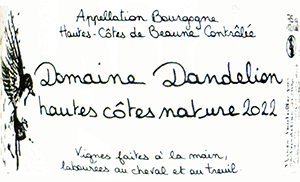 Appellation Bourgogne
Hautes-Côtes de Beaune Contrôlée
Domaine Dandelion
hautes côtes nature 2022
Vignes faites à la main,
labourées au cheval et au treuil.